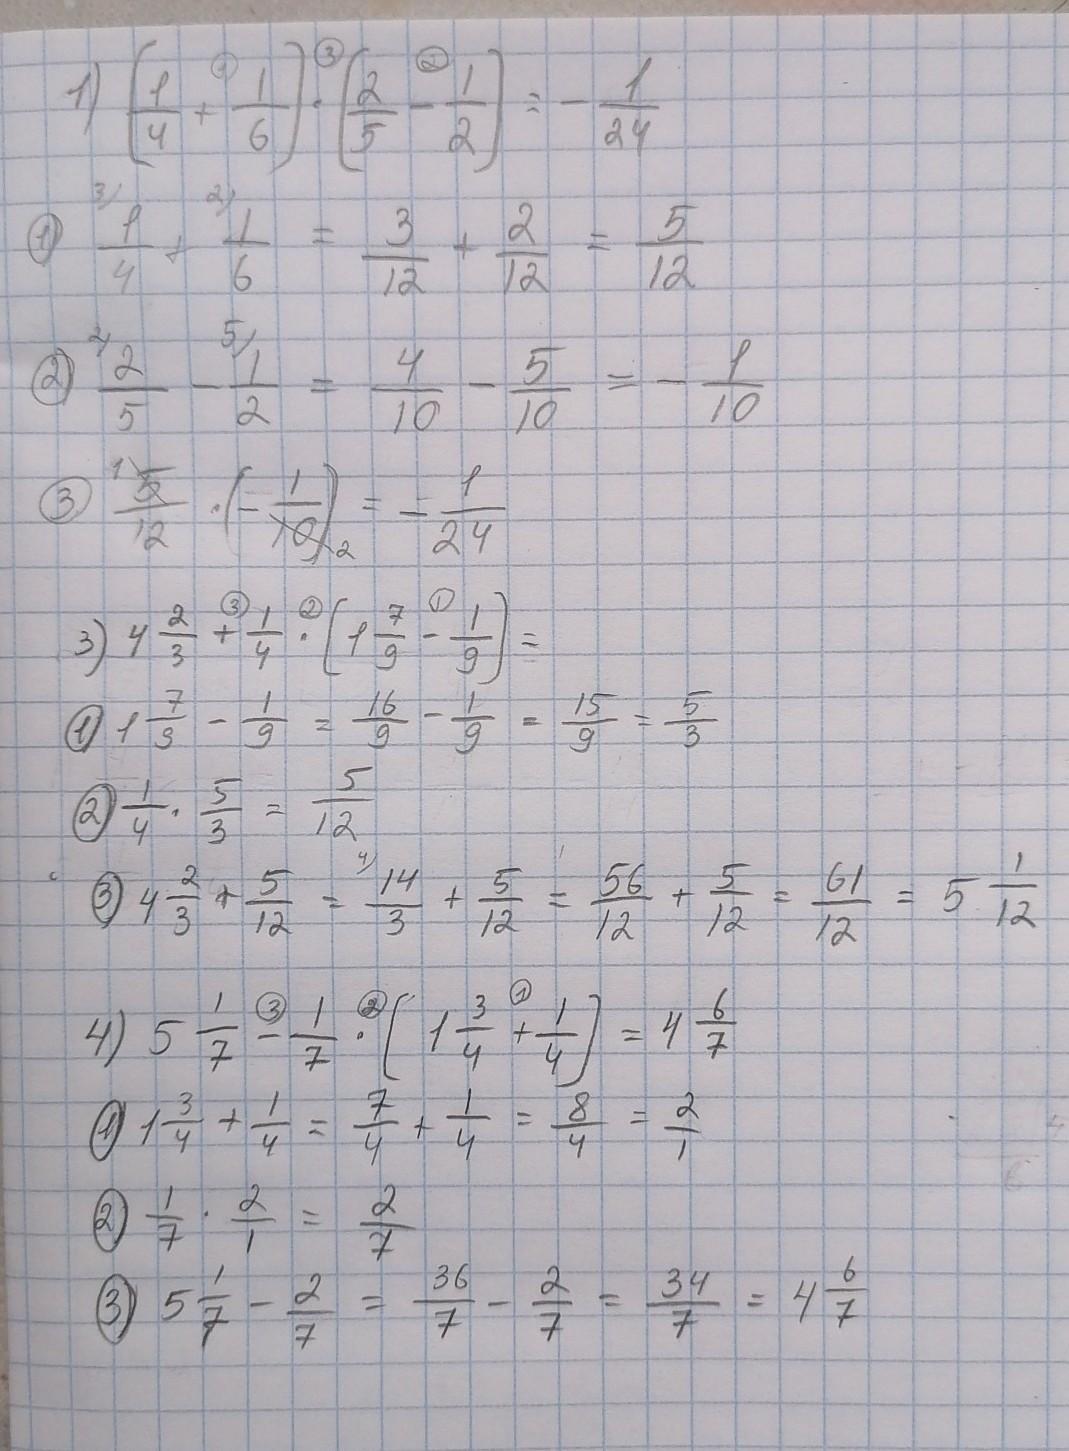 1) (1/4 + 1/6) · (2/5 - 1/2) = - 1/24
① 1/4 + 1/6 = 3/12 + 2/12 = 5/12
② 2/5 - 1/2 = 4/10 - 5/10 = - 1/10
③ 5/12 · (- 1/10) = - 1/24
3) 4 2/3 + 1/4 · (1 7/9 - 1/9) =
① 1 7/9 - 1/9 = 16/9 - 1/9 = 15/9 = 5/3
② 1/4 · 5/3 = 5/12
③ 4 2/3 + 5/12 = 14/3 + 5/12 = 56/12 + 5/12 = 61/12 = 5 1/12
4) 5 1/7 - 1/7 · (1 3/4 + 1/4) = 4 6/7
① 1 3/4 + 1/4 = 7/4 + 1/4 = 8/4 = 2/1
② 1/7 · 2/1 = 2/7
③ 5 1/7 - 2/7 = 36/7 - 2/7 = 34/7 = 4 6/7